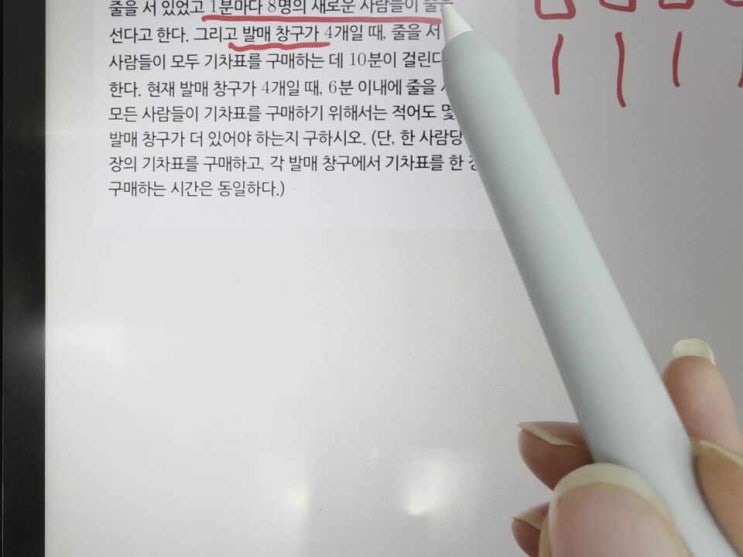 줄을 서 있었고 1분마다 8명의 새로운 사람들이 줄을
선다고 한다. 그리고 발매 창구가 4개일 때, 줄을 서
사람들이 모두 기차표를 구매하는 데 10분이 걸린다
한다. 현재 발매 창구가 4개일 때, 6분 이내에 줄을
모든 사람들이 기차표를 구매하기 위해서는 적어도 몇
발매 창구가 더 있어야 하는지 구하시오. (단, 한 사람당
장의 기차표를 구매하고, 각 발매 창구에서 기차표를 한
구매하는 시간은 동일하다.)